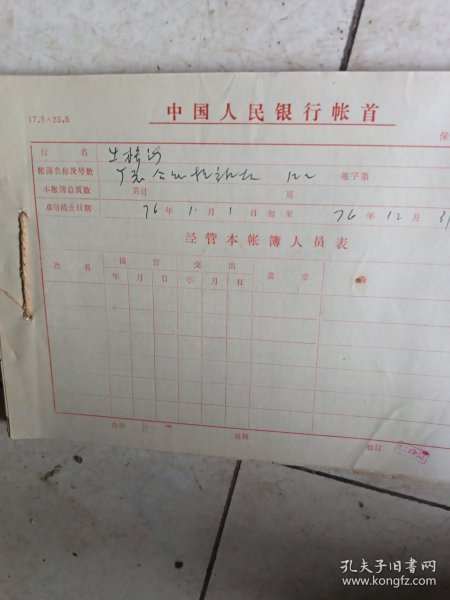 17.5×25.5
中国人民银行帐首
保
行 名
帐簿名称及号数 122 帐字第
本帐簿总页数 共计 页
启用截止日期 76 年 1 月 1 日起至 76 年 12 月 31
经管本帐簿人员表
姓 名 接 管 交 出 盖 章 备
年 月 日 年 月 日
装订 复核 装订
孔夫子旧书网
www.kongfz.com